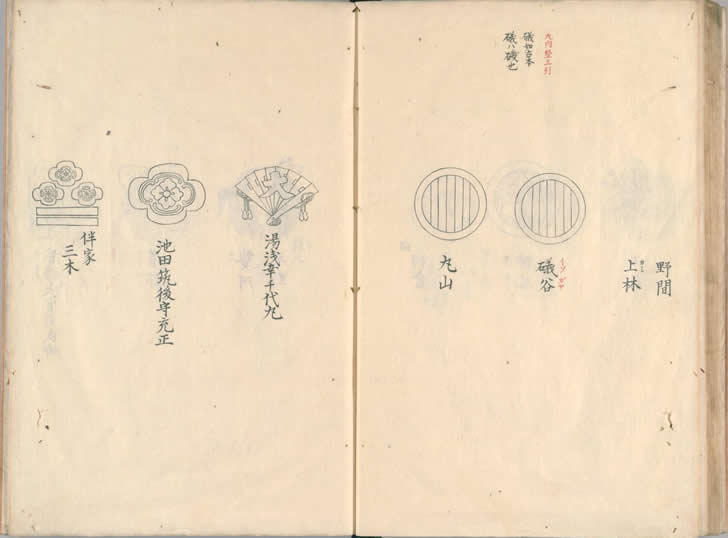 野間
上林
カミ
丸内竪三引
礒如古本
礒ハ磯也
礒谷
イソガヤ
丸山
湯浅幸千代丸
池田筑後守充正
伴家
三木